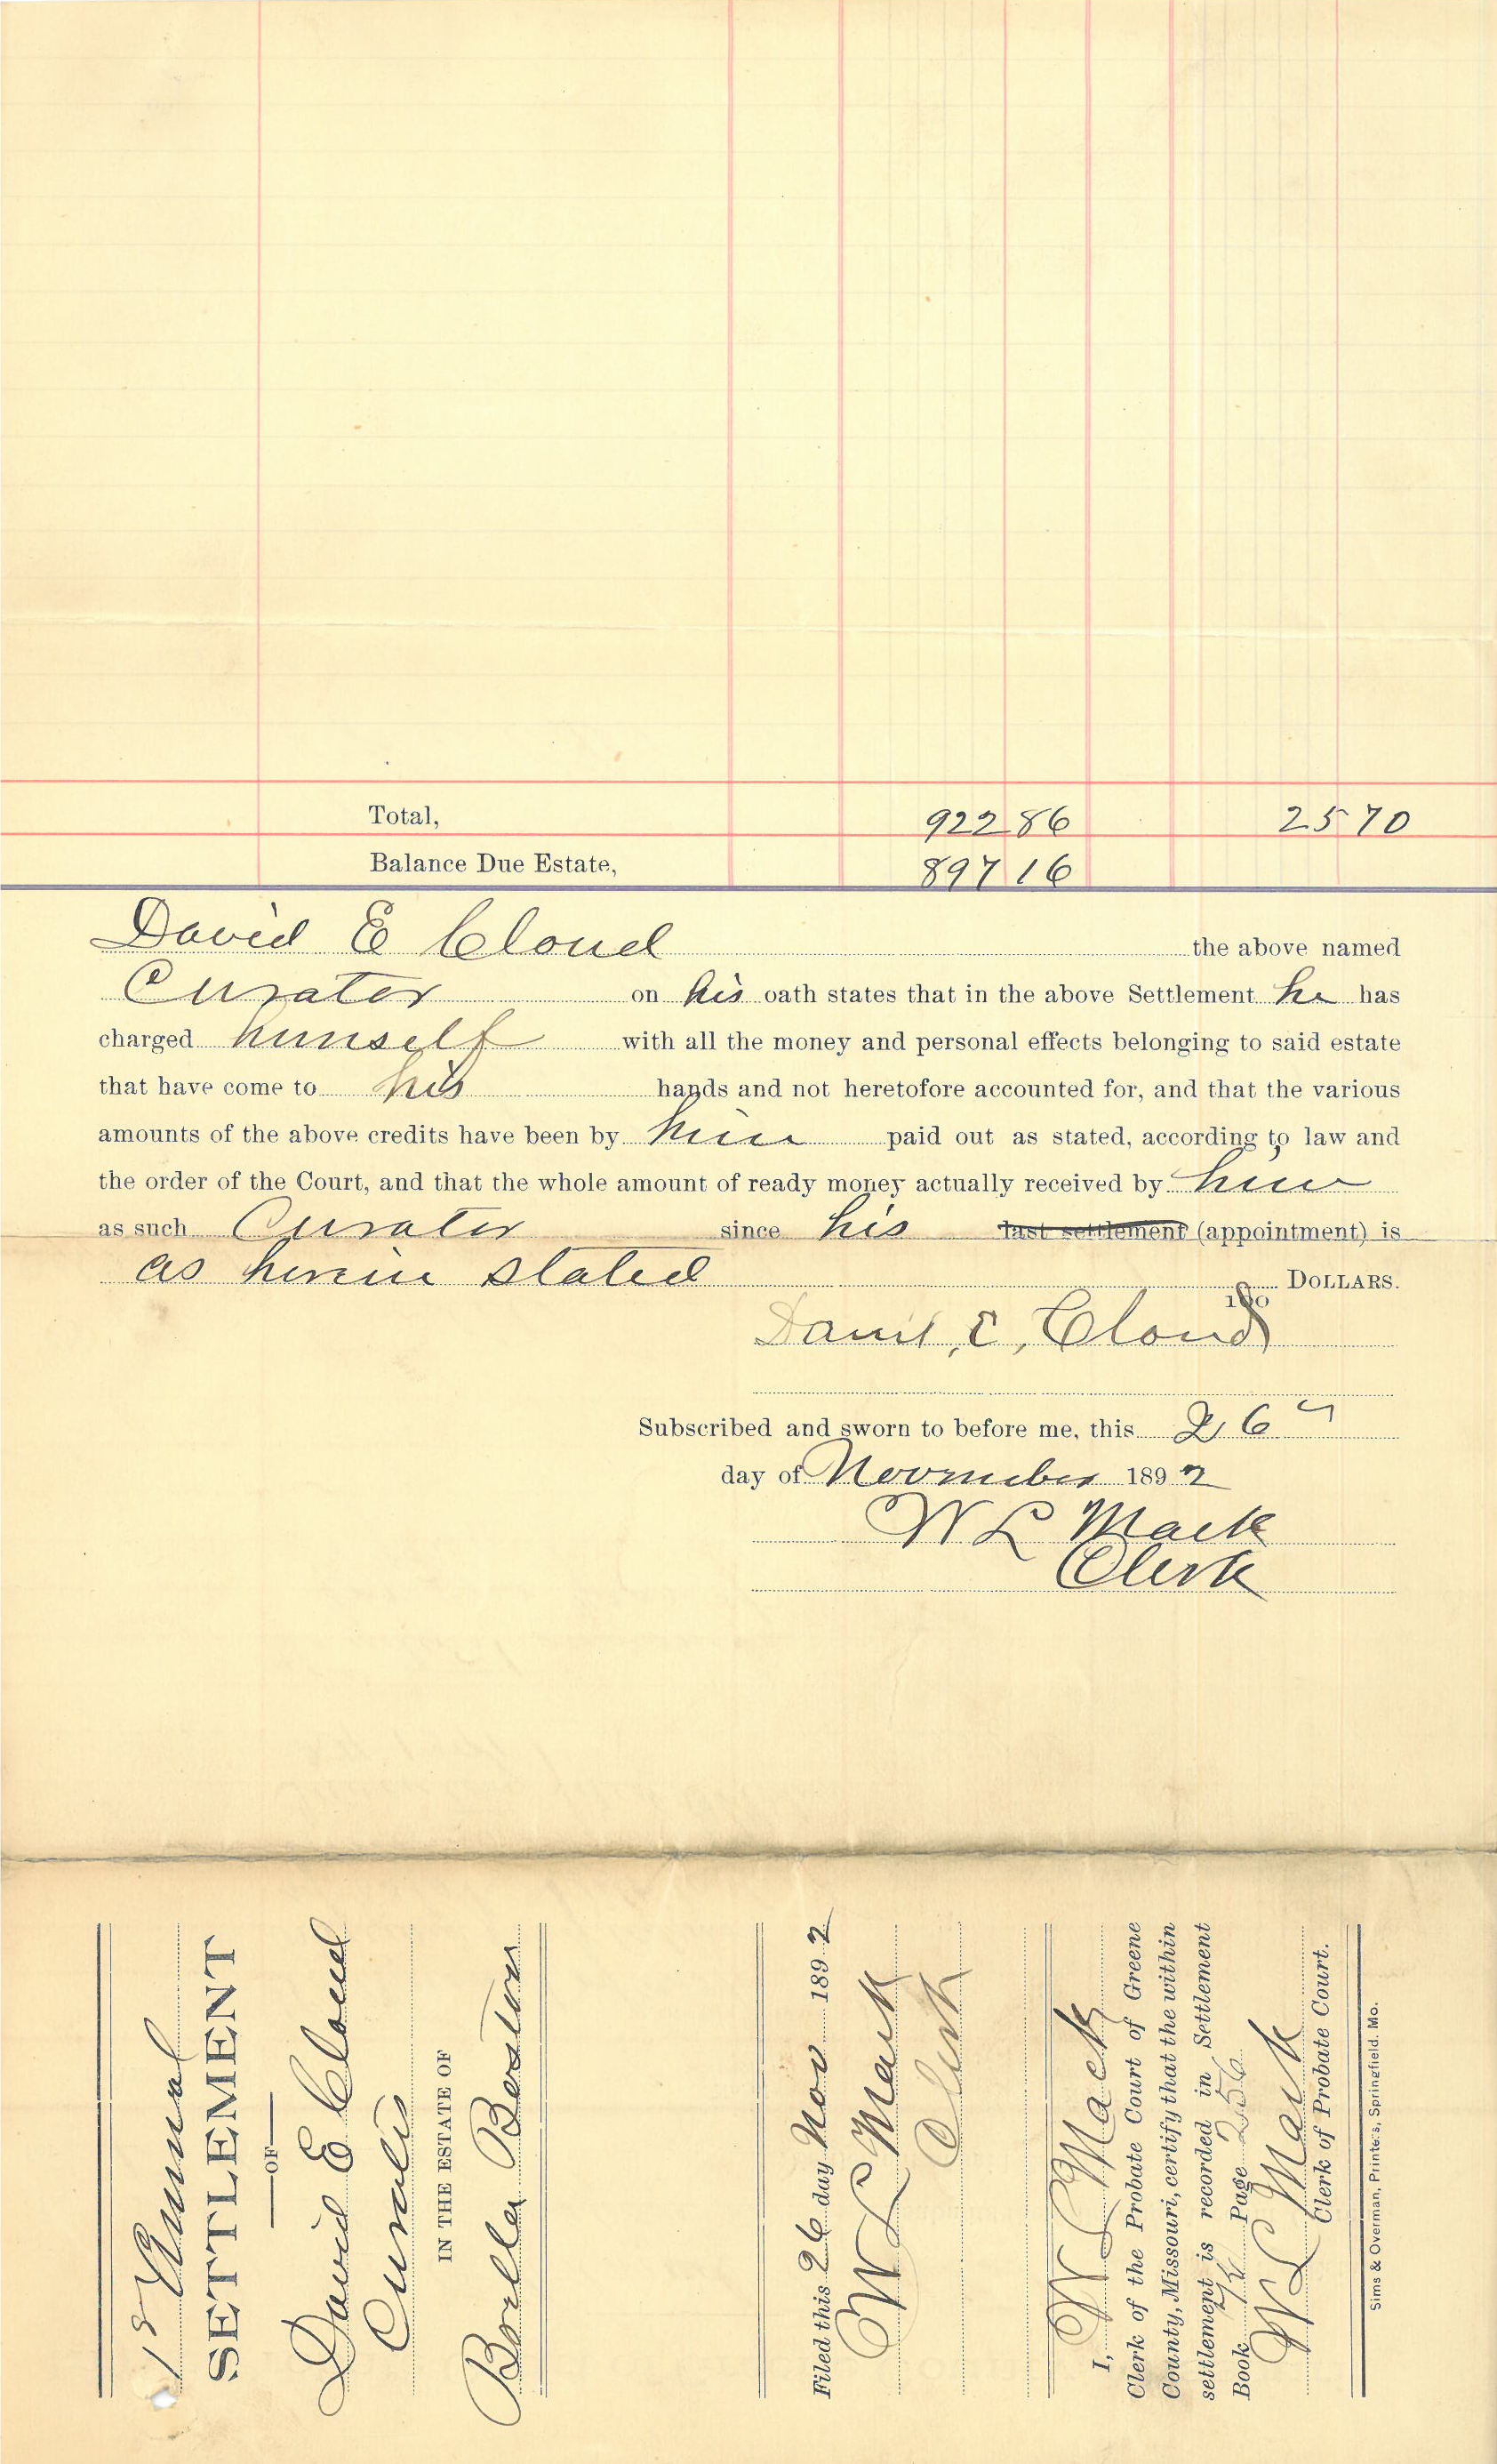 Total, 922 86 25 70
Balance Due Estate, 897 16
David E Cloud the above named
Curator on his oath states that in the above Settlement he has
charged himself with all the money and personal effects belonging to said estate
that have come to his hands and not heretofore accounted for, and that the various
amounts of the above credits have been by him paid out as stated, according to law and
the order of the Court, and that the whole amount of ready money actually received by him
as such Curator since his last settlement (appointment) is
as herein stated DOLLARS.
100
David, E, Cloud
Subscribed and sworn to before me, this 26"
day of November 1892
W L Mack
Clerk
1st Annual
SETTLEMENT
OF
David E Cloud
Curator
IN THE ESTATE OF
Filed this 26 day Nov 1892
W L Mack
Clerk
I, W L Mack
Clerk of the Probate Court of Greene
County, Missouri, certify that the within
settlement is recorded in Settlement
Book Page 256
W L Mack
Clerk of Probate Court.
Sims & Overman, Printers, Springfield. Mo.